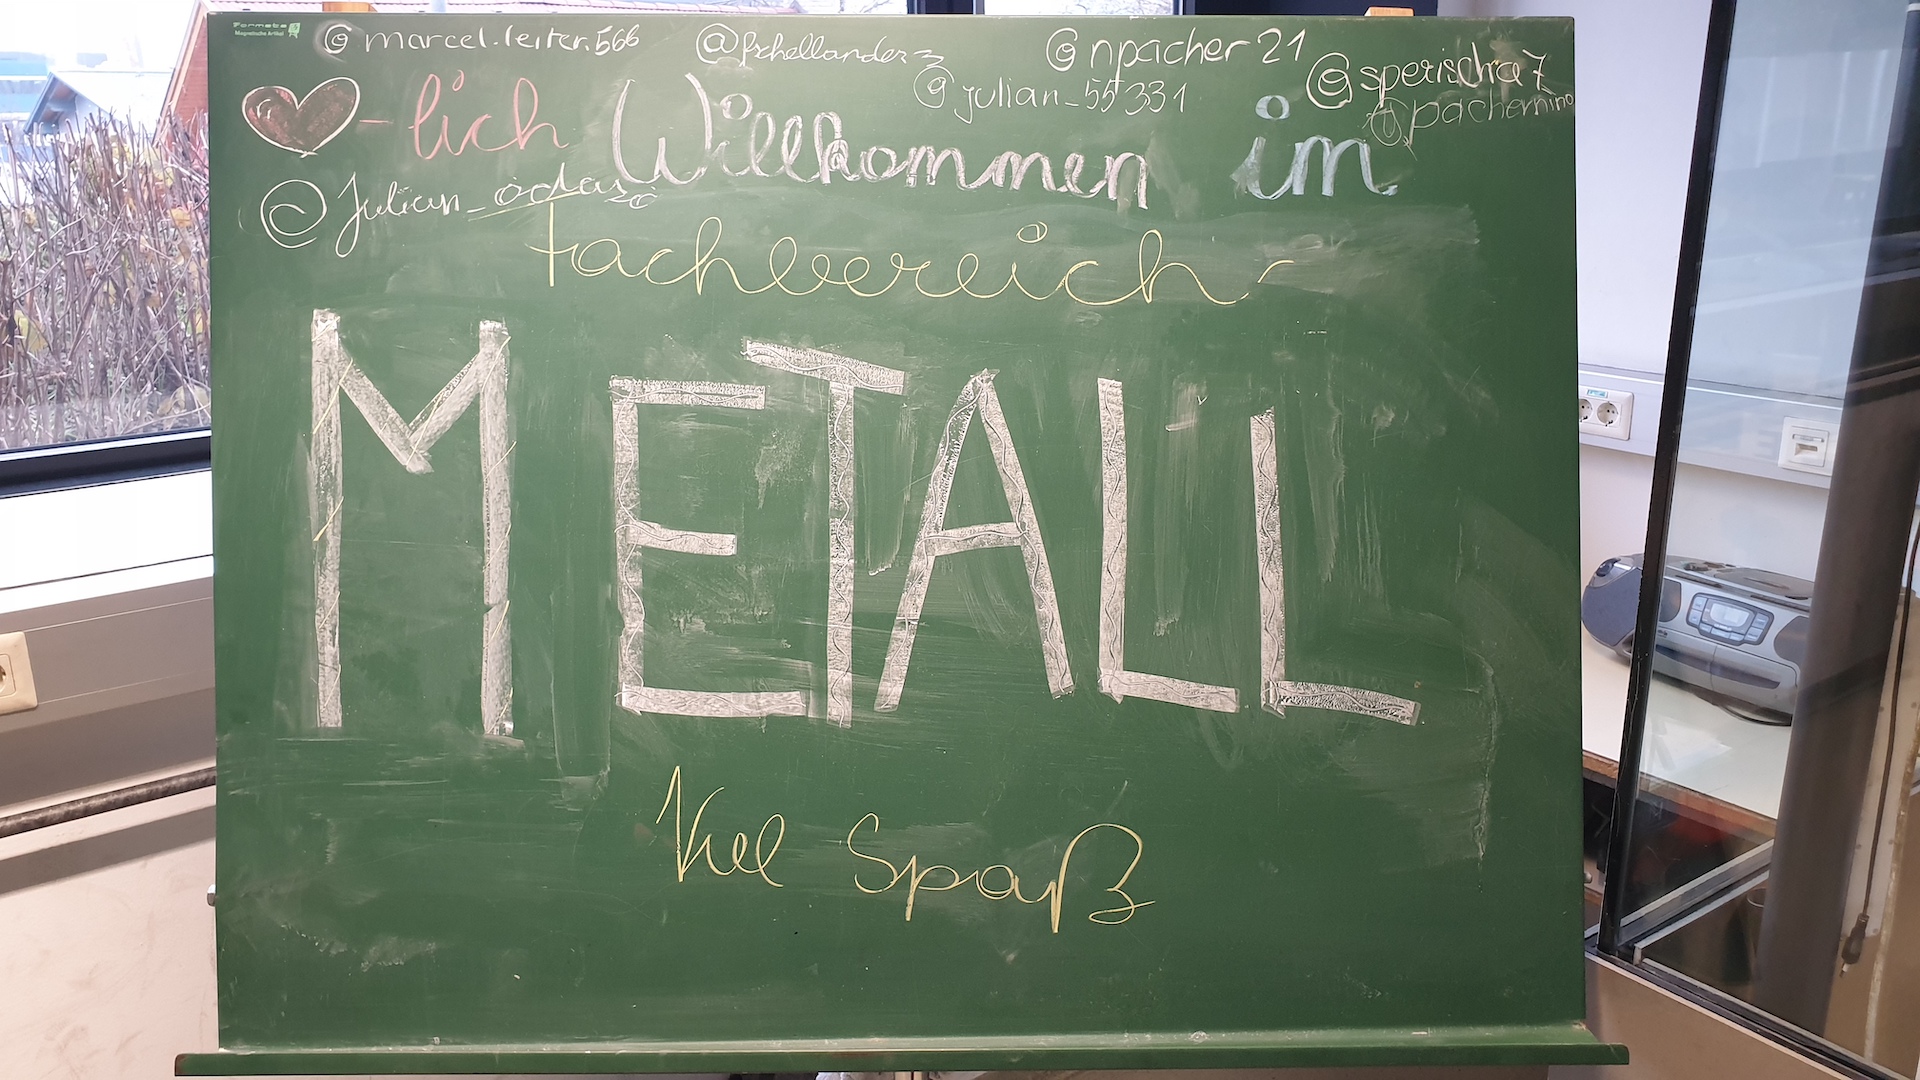 Formata
Magnetische Artikel
@marcel.leiter.566
@fschellander_3
@npacher21
@sperischa7
@julian_55331
@pachernino
-lich Willkommen im
@Julian_
Fachbereich-
METALL
Viel Spaß